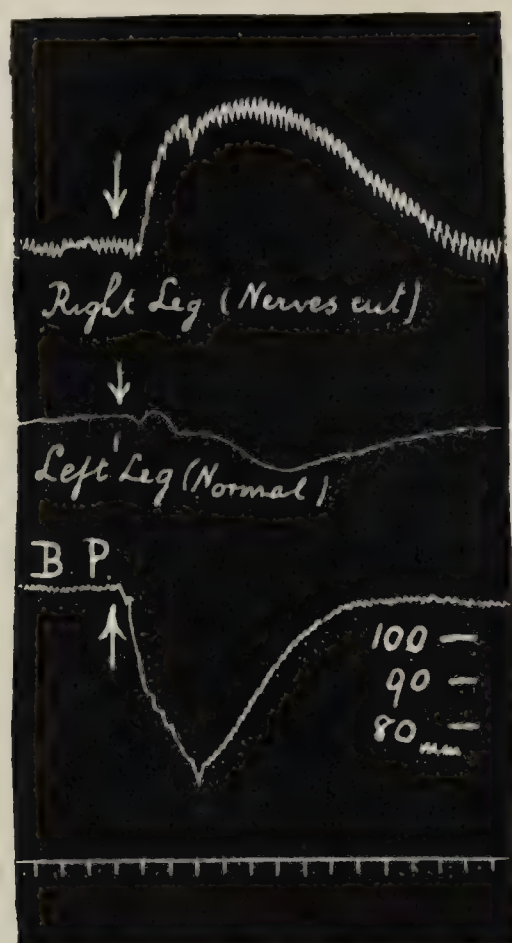 Right Leg (Nerves cut)
Left Leg (Normal)
B. P.
100
90
80 mm